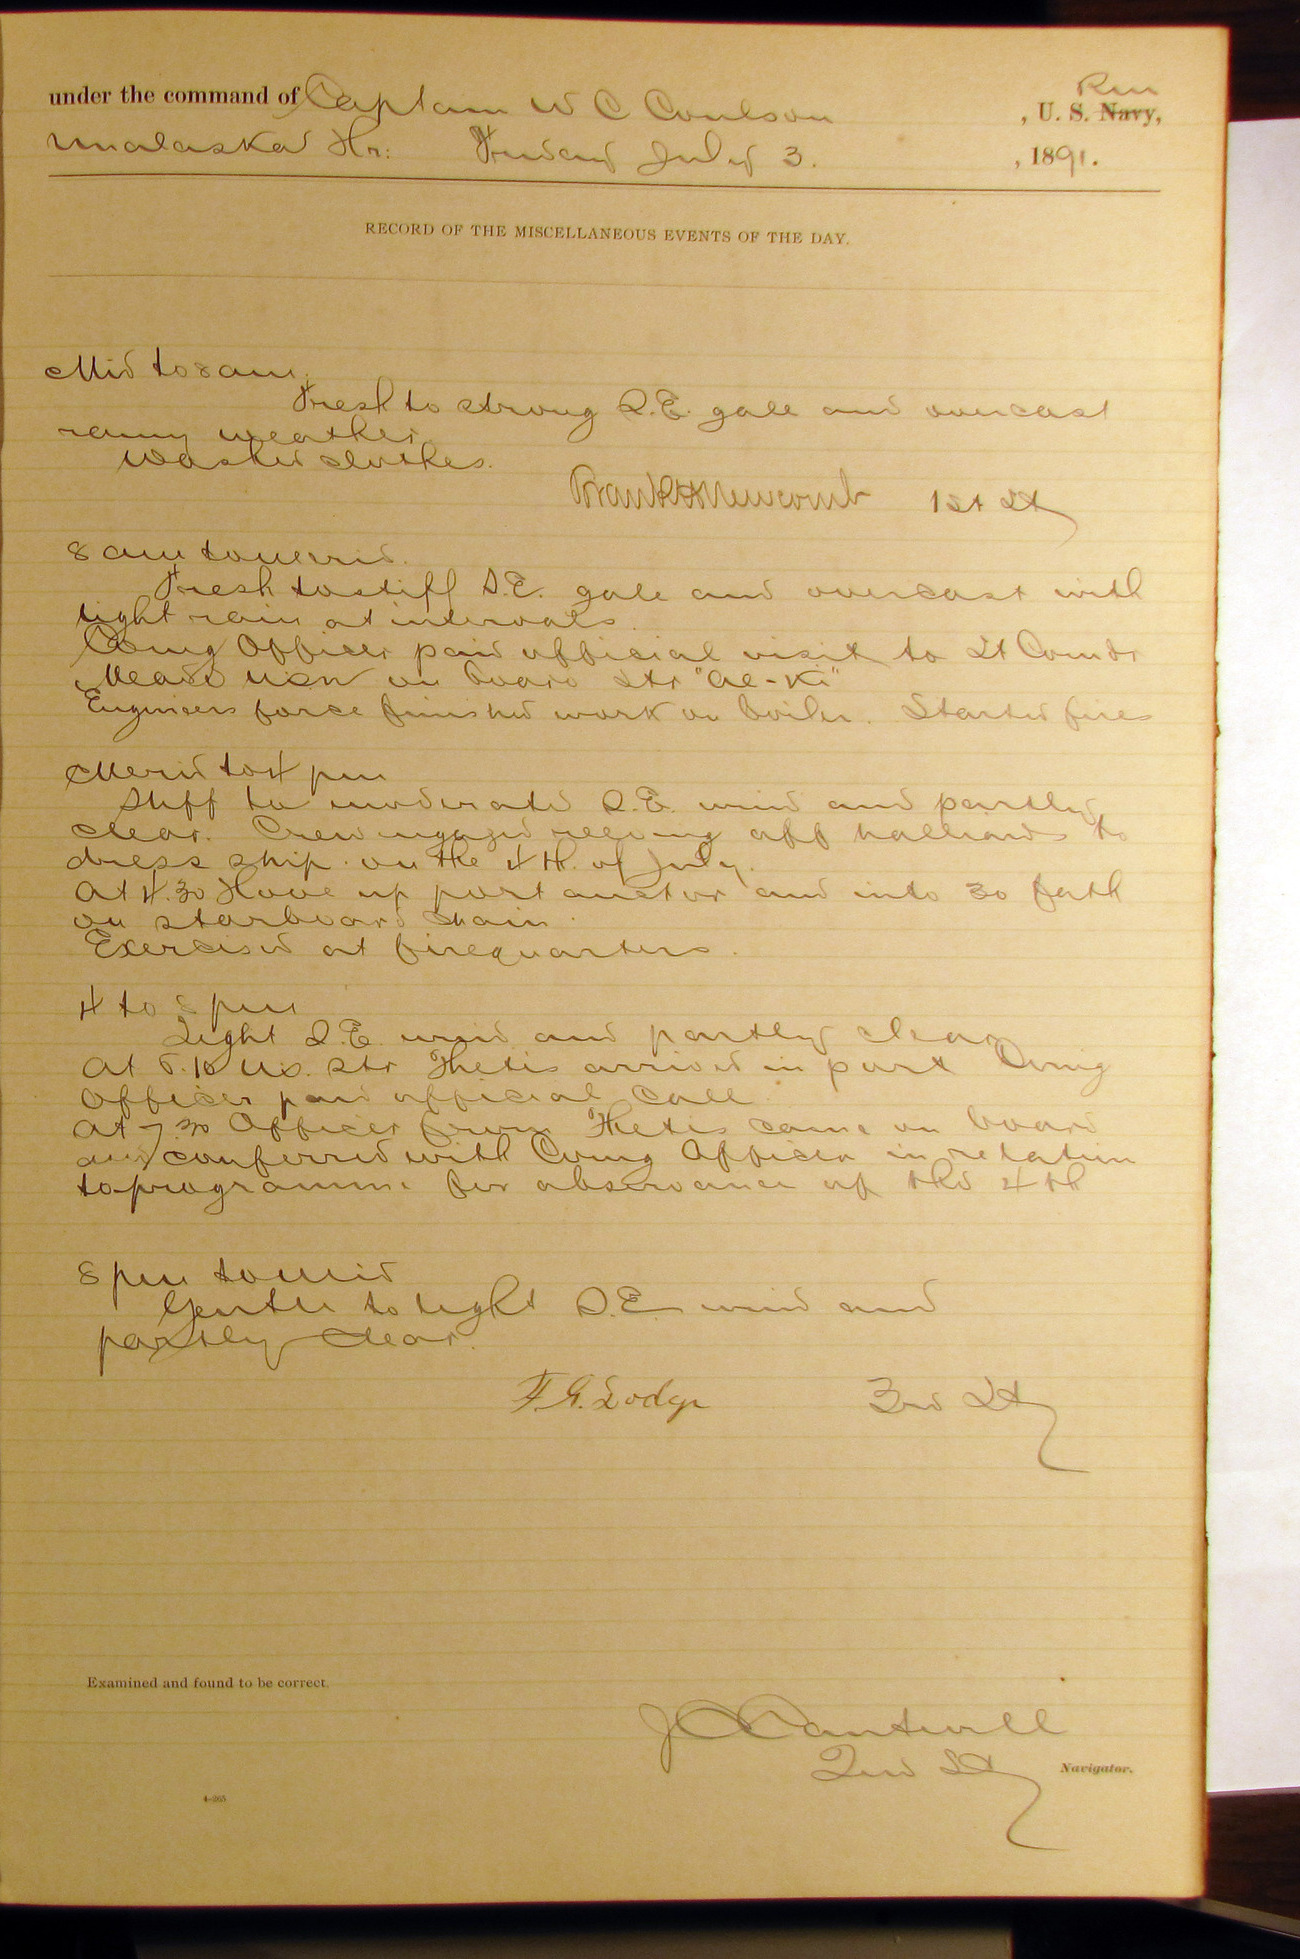 under the command of Captain W C Coulson , U. S. Navy, Rm
Unalaska Hr: Friday July 3. , 1891.
RECORD OF THE MISCELLANEOUS EVENTS OF THE DAY.
Mid to 8 am.
Fresh to strong S.E. gale and overcast
rainy weather.
Washed clothes.
Frank H Newcomb 1st Lt
8 am to merid.
Fresh to stiff S.E. gale and overcast with
light rain at intervals.
Comg Officer paid official visit to Lt Comdr
Mead USN on board Str "Al-Ki"
Engineers force finished work on boiler. Started fires
Merid to 4 pm
Stiff to moderate S.E. wind and partly
clear. Crew engaged reeving off halliards to
dress ship on the 4th. of July.
At 4.30 Hove up port anchor and into 30 fath
on starboard chain.
Exercised at firequarters.
4 to 8 pm
Light S.E. wind and partly clear
At 5.10 U.S. Str Thetis arrived in port Comg
Officer paid official call
At 7.30 Officer from Thetis came on board
and conferred with Comg Officer in relation
to programme for observance of the 4th
8 pm to mid
Gentle to light S.E. wind and
partly clear.
F. G. Dodge 3rd Lt
Examined and found to be correct.
J C Cantwell
2nd Lt Navigator.
4-265